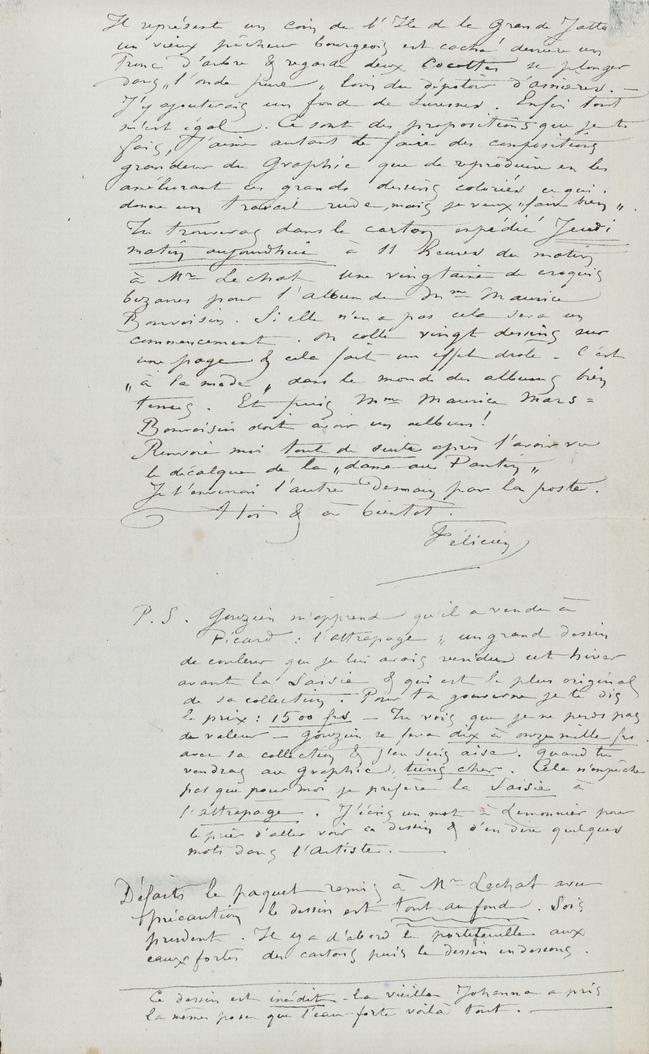 Il représente un coin de l'Ile de la Grande Jatte
un vieux pêcheur bourgeois est caché derrière un
Tronc d'arbre & regarde deux Cocottes se plonger
dans „l'onde pure„ loin du dépotoir d'asnières. —
J'y ajouterais un fond de Suresnes. Enfin tout
m'est égal. Ce sont des propositions que je te
fais, J'aime autant te faire des compositions
grandeur du Graphic que de reproduire en les
améliorant ces grands dessins coloriés ce qui
donne un travail rude, mais je veux „faire bien„.
Tu trouveras dans le carton expédié Jeudi
matin aujourdhui à 11 heures du matin
à Mr Lechat une vingtaine de croquis
bizarres pour l'album de Mme Maurice
Bonvoisin. Si elle n'en a pas cela sera un
commencement. On colle vingt dessins sur
une page & cela fait un effet drôle. C'est
„à la mode„ dans le monde des albums bien
tenus. Et puis Mme Maurice Mars=
Bonvoisin doit avoir un album!
Renvoie moi tout de suite après l'avoir vu
le décalque de la „dame au Pantin„
Je t'enverrai l'autre Demain par la poste.
à Toi & à bientôt.
Félicien
P.S. Gouzien m'apprend qu'il a vendu à
Picard: l'attrapage„ un grand dessin
de couleur que je lui avais vendu cet hiver
avant la Saisie & qui est le plus original
de sa collection. Pour ta gouverne je te dis
le prix: 1500 frs — Tu vois que je ne perds pas
de valeur — Gouzien se fera dix à onze mille frs
avec sa collection & j'en suis aise. Quand tu
vendras au Graphic, tiens cher. Cela n'empêche
pas que pour moi je préfère la Saisie à
l'attrapage. J'écris un mot à Lemonnier pour
le prier d'aller voir ce dessin & d'en dire quelques
mots dans l'Artiste. —
Défaits le paquet remis à Mr Lechat avec
précaution le dessin est tout au fond. Sois
prudent. Il y a d'abord le portefeuille aux
eaux-fortes des cartons puis le dessin en dessous.
Ce dessin est inédit — la vieille Johanna a pris
la même pose que l'eau-forte voilà tout. —